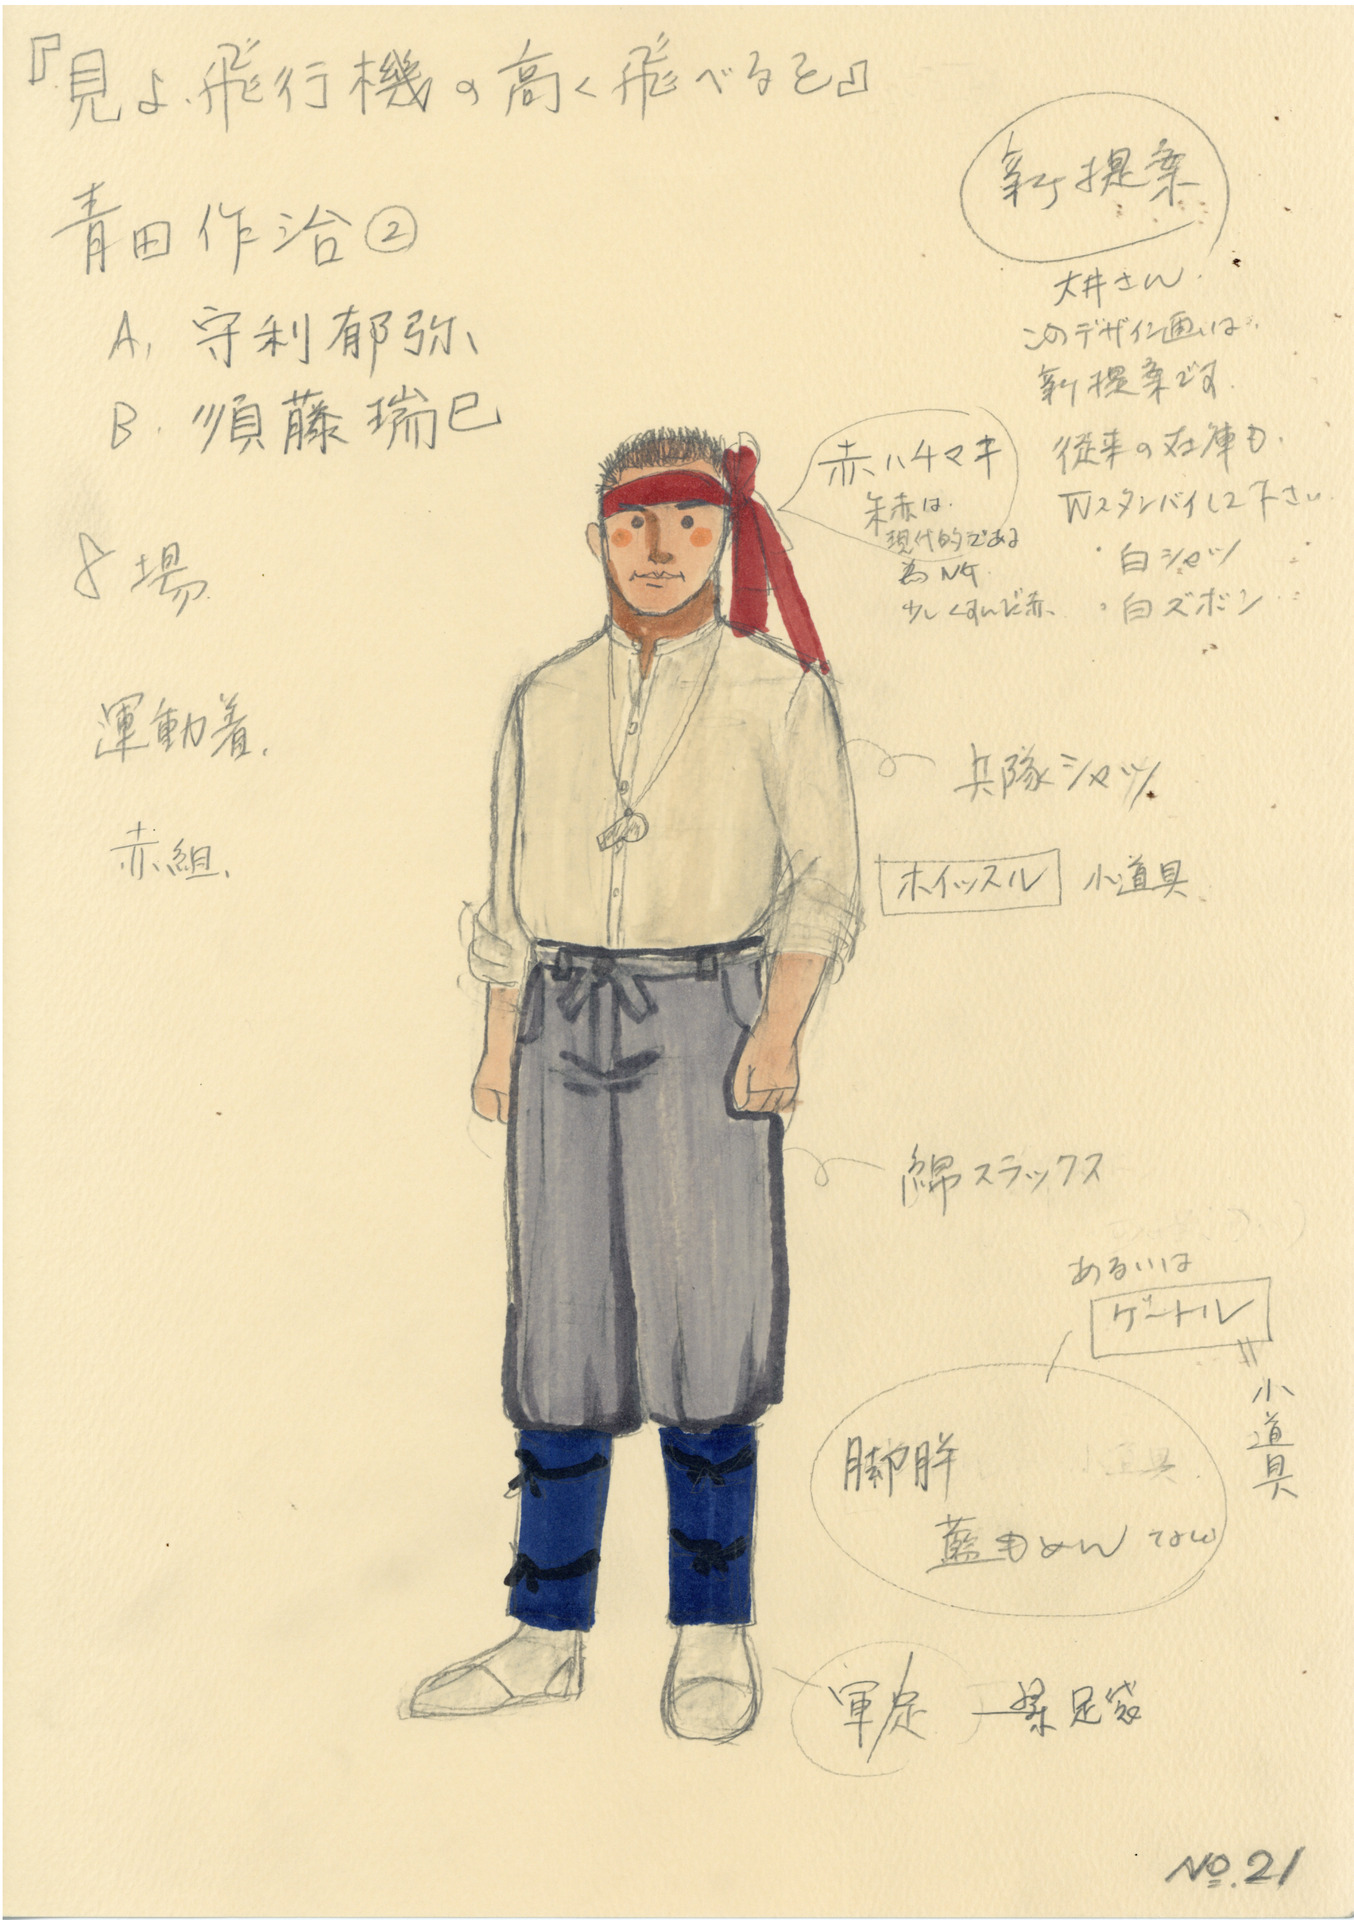 『見よ、飛行機の高く飛べるを』
青田作治②
A. 守利郁弥
B. 須藤瑞巳
8場
運動着.
赤組.
新提案
大井さん.
このデザイン画は
新提案です.
従来の在庫も.
Wスタンバイして下さい.
・白シャツ
・白ズボン
赤ハチマキ
朱赤は.
現代的である
為NG.
少しくすんだ赤.
兵隊シャツ
ホイッスル 小道具.
綿スラックス
あるいは
ゲートル
小道具
脚胖
小道具.
藍もめん
軍足
足袋
No.21